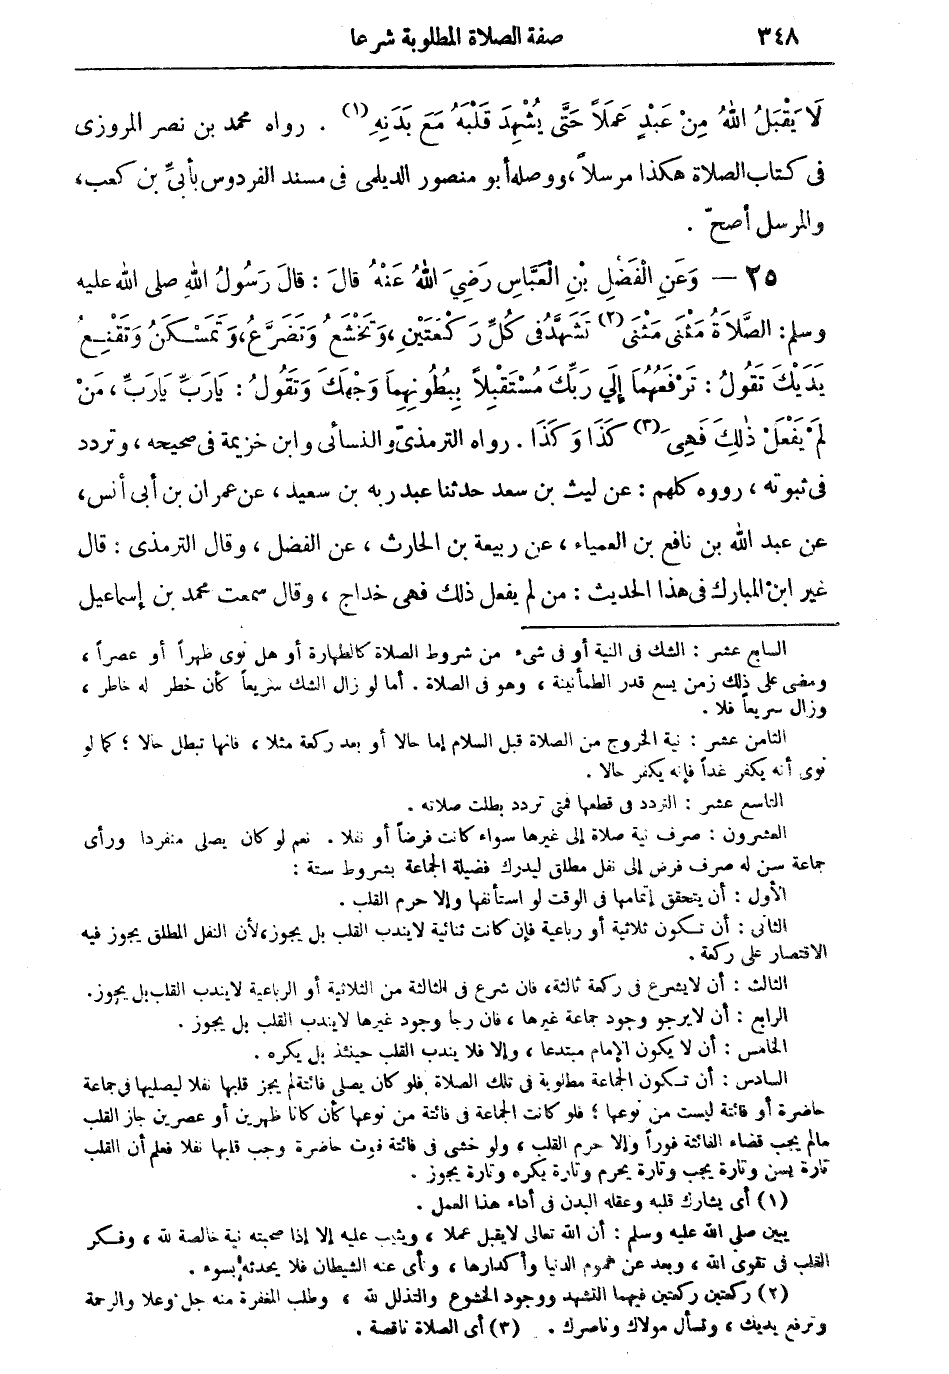 ٣٤٨ صفة الصلاة المطلوبة شرعا
لَا يَقْبَلُ اللهُ مِنْ عَبْدٍ عَمَلاً حَتَّى يُشْهِدَ قَلْبَهُ مَعَ بَدَنِهِ (١) . رواه محمد بن نصر المروزى
فى كتاب الصلاة هكذا مرسلاً ، ووصله أبو منصور الديلمى فى مسند الفردوس بأبىِّ بن كعب،
والمرسل أصحّ .
٢٥ — وَعَنِ الْفَضْلِ بْنِ الْعَبَّاسِ رَضِيَ اللهُ عَنْهُ قالَ : قالَ رَسُولُ اللهِ صلى الله عليه
وسلم: الصَّلاَةُ مَثْنَى مَثْنَى (٢) تَشَهَّدُ فى كُلِّ رَكْعَتَيْنِ ، وَتَخْشَعُ وَتَضَرَّعُ، وَتَمَسْكَنُ وَتُقْنِعُ
يَدَيْكَ تَقُولُ : تَرْفَعُهُمَا إِلَي رَبِّكَ مُسْتَقْبِلاً بِبُطُونِهِماَ وَجْهَكَ وَتَقُولُ : يَارَبِّ يَارَبِّ ، مَنْ
لَمْ يَفْعَلْ ذٰلِكَ فَهِىَ (٣) كَذَا وَكَذَا . رواه الترمذىّ والنسائى وابن خزيمة فى صحيحه ، وتردد
فى ثبوته ، رووه كلهم : عن ليث بن سعد حدثنا عبد ربه بن سعيد ، عن عمران بن أبى أنس،
عن عبد الله بن نافع بن العمياء ، عن ربيعة بن الحارث ، عن الفضل ، وقال الترمذى : قال
غير ابن المبارك فى هذا الحديث : من لم يفعل ذلك فهى خداج ، وقال سمعت محمد بن إسماعيل
السابع عشر : الشك فى النية أو فى شىء من شروط الصلاة كالطهارة أو هل نوى ظهراً أو عصراً ،
ومضى على ذلك زمن يسع قدر الطمأنينة ، وهو فى الصلاة . أما لو زال الشك سريعاً كأن خطر له خاطر ،
وزال سريعاً فلا .
الثامن عشر : نية الخروج من الصلاة قبل السلام إما حالا أو بعد ركعة مثلا ، فانها تبطل حالا ؛ كما لو
نوى أنه يكفر غداً فإنه يكفر حالا .
التاسع عشر : التردد فى قطعها فمتى تردد بطلت صلاته .
العشرون : صرف نية صلاة إلى غيرها سواء كانت فرضاً أو نفلا . نعم لو كان يصلى منفردا ورأى
جماعة سن له صرف فرض إلى نفل مطلق ليدرك فضيلة الجماعة بشروط ستة :
الأول : أن يتحقق إتمامها فى الوقت لو استأنفها وإلا حرم القلب .
الثانى : أن تكون ثلاثية أو رباعية فإن كانت ثنائية لايندب القلب بل يجوز، لأن النفل المطلق يجوز فيه
الاقتصار على ركعة .
الثالث : أن لايشرع فى ركعة ثالثة، فان شرع فى الثالثة من الثلاثية أو الرباعية لايندب القلب بل يجوز.
الرابع : أن لايرجو وجود جماعة غيرها ، فان رجا وجود غيرها لايندب القلب بل يجوز .
الخامس : أن لا يكون الإمام مبتدعا ، وإلا فلا يندب القلب حينئذ بل يكره .
السادس : أن تكون الجماعة مطلوبة فى تلك الصلاة فلو كان يصلى فائتة لم يجز قلبها نفلا ليصليها فى جماعة
حاضرة أو فائتة ليست من نوعها ؛ فلو كانت الجماعة فى فائتة من نوعها كأن كانا ظهرين أو عصرين جاز القلب
مالم يجب قضاء الفائتة فوراً وإلا حرم القلب ، ولو خشى فى فائتة فوت حاضرة وجب قلبها نفلا فعلم أن القلب
تارة يسن وتارة يجب وتارة يحرم وتارة يكره وتارة يجوز .
(١) أى يشارك قلبه وعقله البدن فى أداء هذا العمل .
يبين صلى الله عليه وسلم : أن الله تعالى لايقبل عملا ، ويثيب عليه إلا إذا صحبته نية خالصة لله ، وفكر
القلب فى تقوى الله ، وبعد عن هموم الدنيا وأكدارها ، ونأى عنه الشيطان فلا يحدثه بسوء .
(٢) ركعتين ركعتين فيهما التشهد ووجود الخشوع والتذلل لله ، وطلب المغفرة منه جل وعلا والرحمة
وترفع يديك ، وتسأل مولاك وناصرك . (٣) أى الصلاة ناقصة .